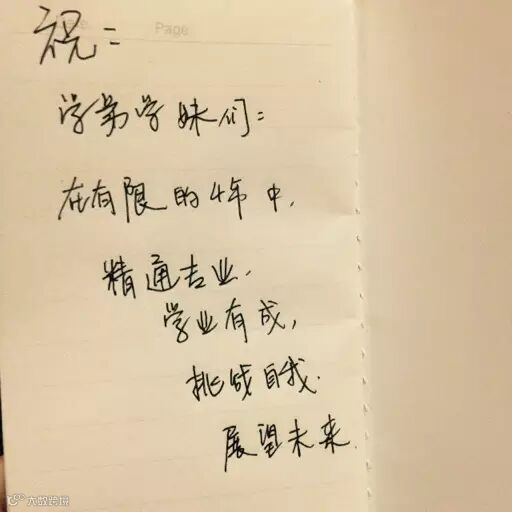 祝：
Page
学弟学妹们：
在有限的4年中，
精通专业．
学业有成，
挑战自我．
展望未来．
大数跨境